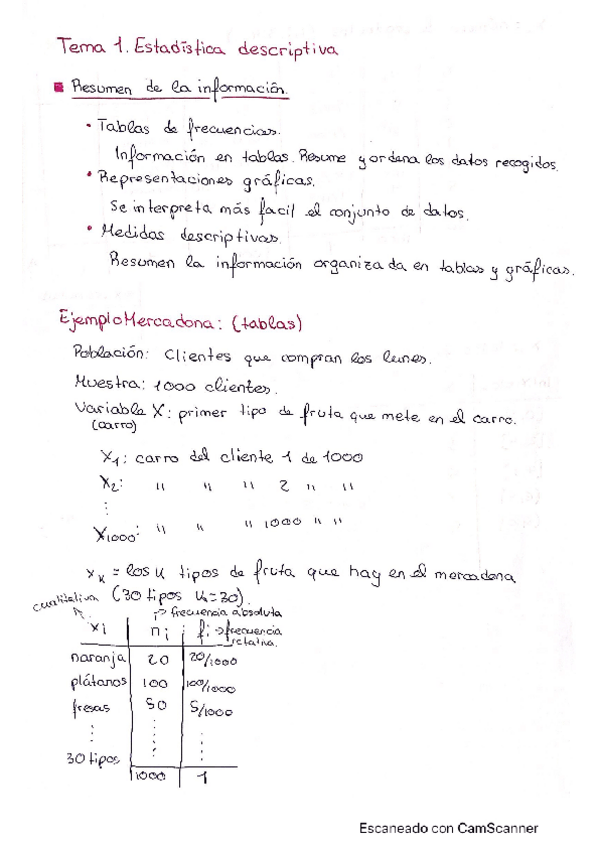 Tema 1. Estadística descriptiva
Resumen de la información.
• Tablas de frecuencias.
Información en tablas. Resume y ordena los datos recogidos.
• Representaciones gráficas.
Se interpreta más facil el conjunto de datos.
• Medidas descriptivas.
Resumen la información organizada en tablas y gráficas.
Ejemplo Mercadona: (tablas)
Población: Clientes que compran los lunes.
Muestra: 1000 clientes.
Variable X: primer tipo de fruta que mete en el carro.
(carro)
X1: carro del cliente 1 de 1000
X2: " " " 2 " "
⋮
X1000: " " " 1000 " "
xk = los k tipos de fruta que hay en el mercadona
cualitativa (30 tipos k=30).
→ frecuencia absoluta
xi ni fi → frecuencia
relativa.
naranja 20 20/1000
plátanos 100 100/1000
fresas 50 5/1000
⋮ ⋮ ⋮
30 tipos
1000 1
Escaneado con CamScanner